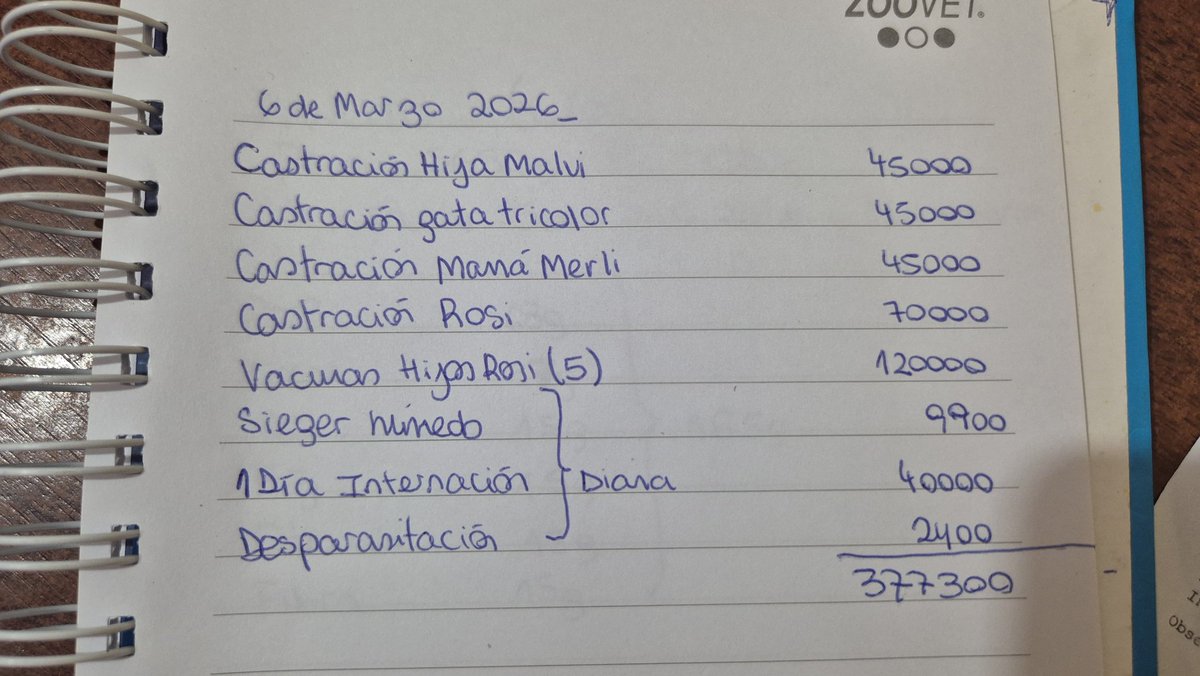 ZOOVET.
6 de Marzo 2026_
Castración Hija Malvi 45000
Castración gata tricolor 45000
Castración Mamá Merli 45000
Castración Rosi 70000
Vacunas Hijos Rosi (5) 120000
Sieger húmedo 9900
1 Día Internación Diana 40000
Desparasitación 2400
377300
Obse